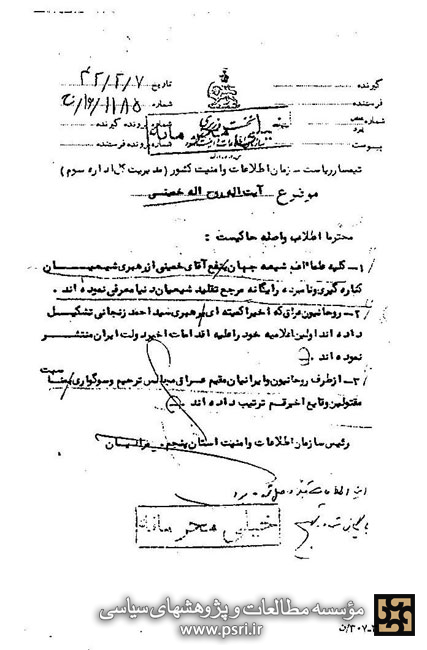 گیرنده
تاریخ ۴۲/۲/۷
فرستنده
شماره ۱۱۸۵/۱۶/خ
شماره
پیوست
شماره پرونده گیرنده
شماره پرونده فرستنده
نخست وزیری
خیلی محرمانه
تیمسار ریاست سازمان اطلاعات و امنیت کشور (مدیریت کل اداره سوم)
موضوع آیت اله روح اله خمینی
محترما اطلاب واصله حاکیست :
۱- کلیه طوائف شیعه جهان بنفع آقای خمینی از رهبری شیعیان
کناره گیری و نامبرده را یگانه مرجع تقلید شیعیان دنیا معرفی نموده اند .
۲- روحانیون عراق که اخیرا کمیته ای برهبری سید احمد زنجانی تشکیل
داده اند اولین اعلامیه خود را علیه اقدامات اخیر دولت ایران منتشر
نموده اند .
۳- از طرف روحانیون و ایرانیان مقیم عراق مجالس ترحیم و سوگواری بمناسبت
مقتولین وقایع اخیر قم ترتیب داده اند .
رئیس سازمان اطلاعات و امنیت استان پنجم
خیلی محرمانه
مؤسسه مطالعات و پژوهشهای سیاسی
www.psri.ir